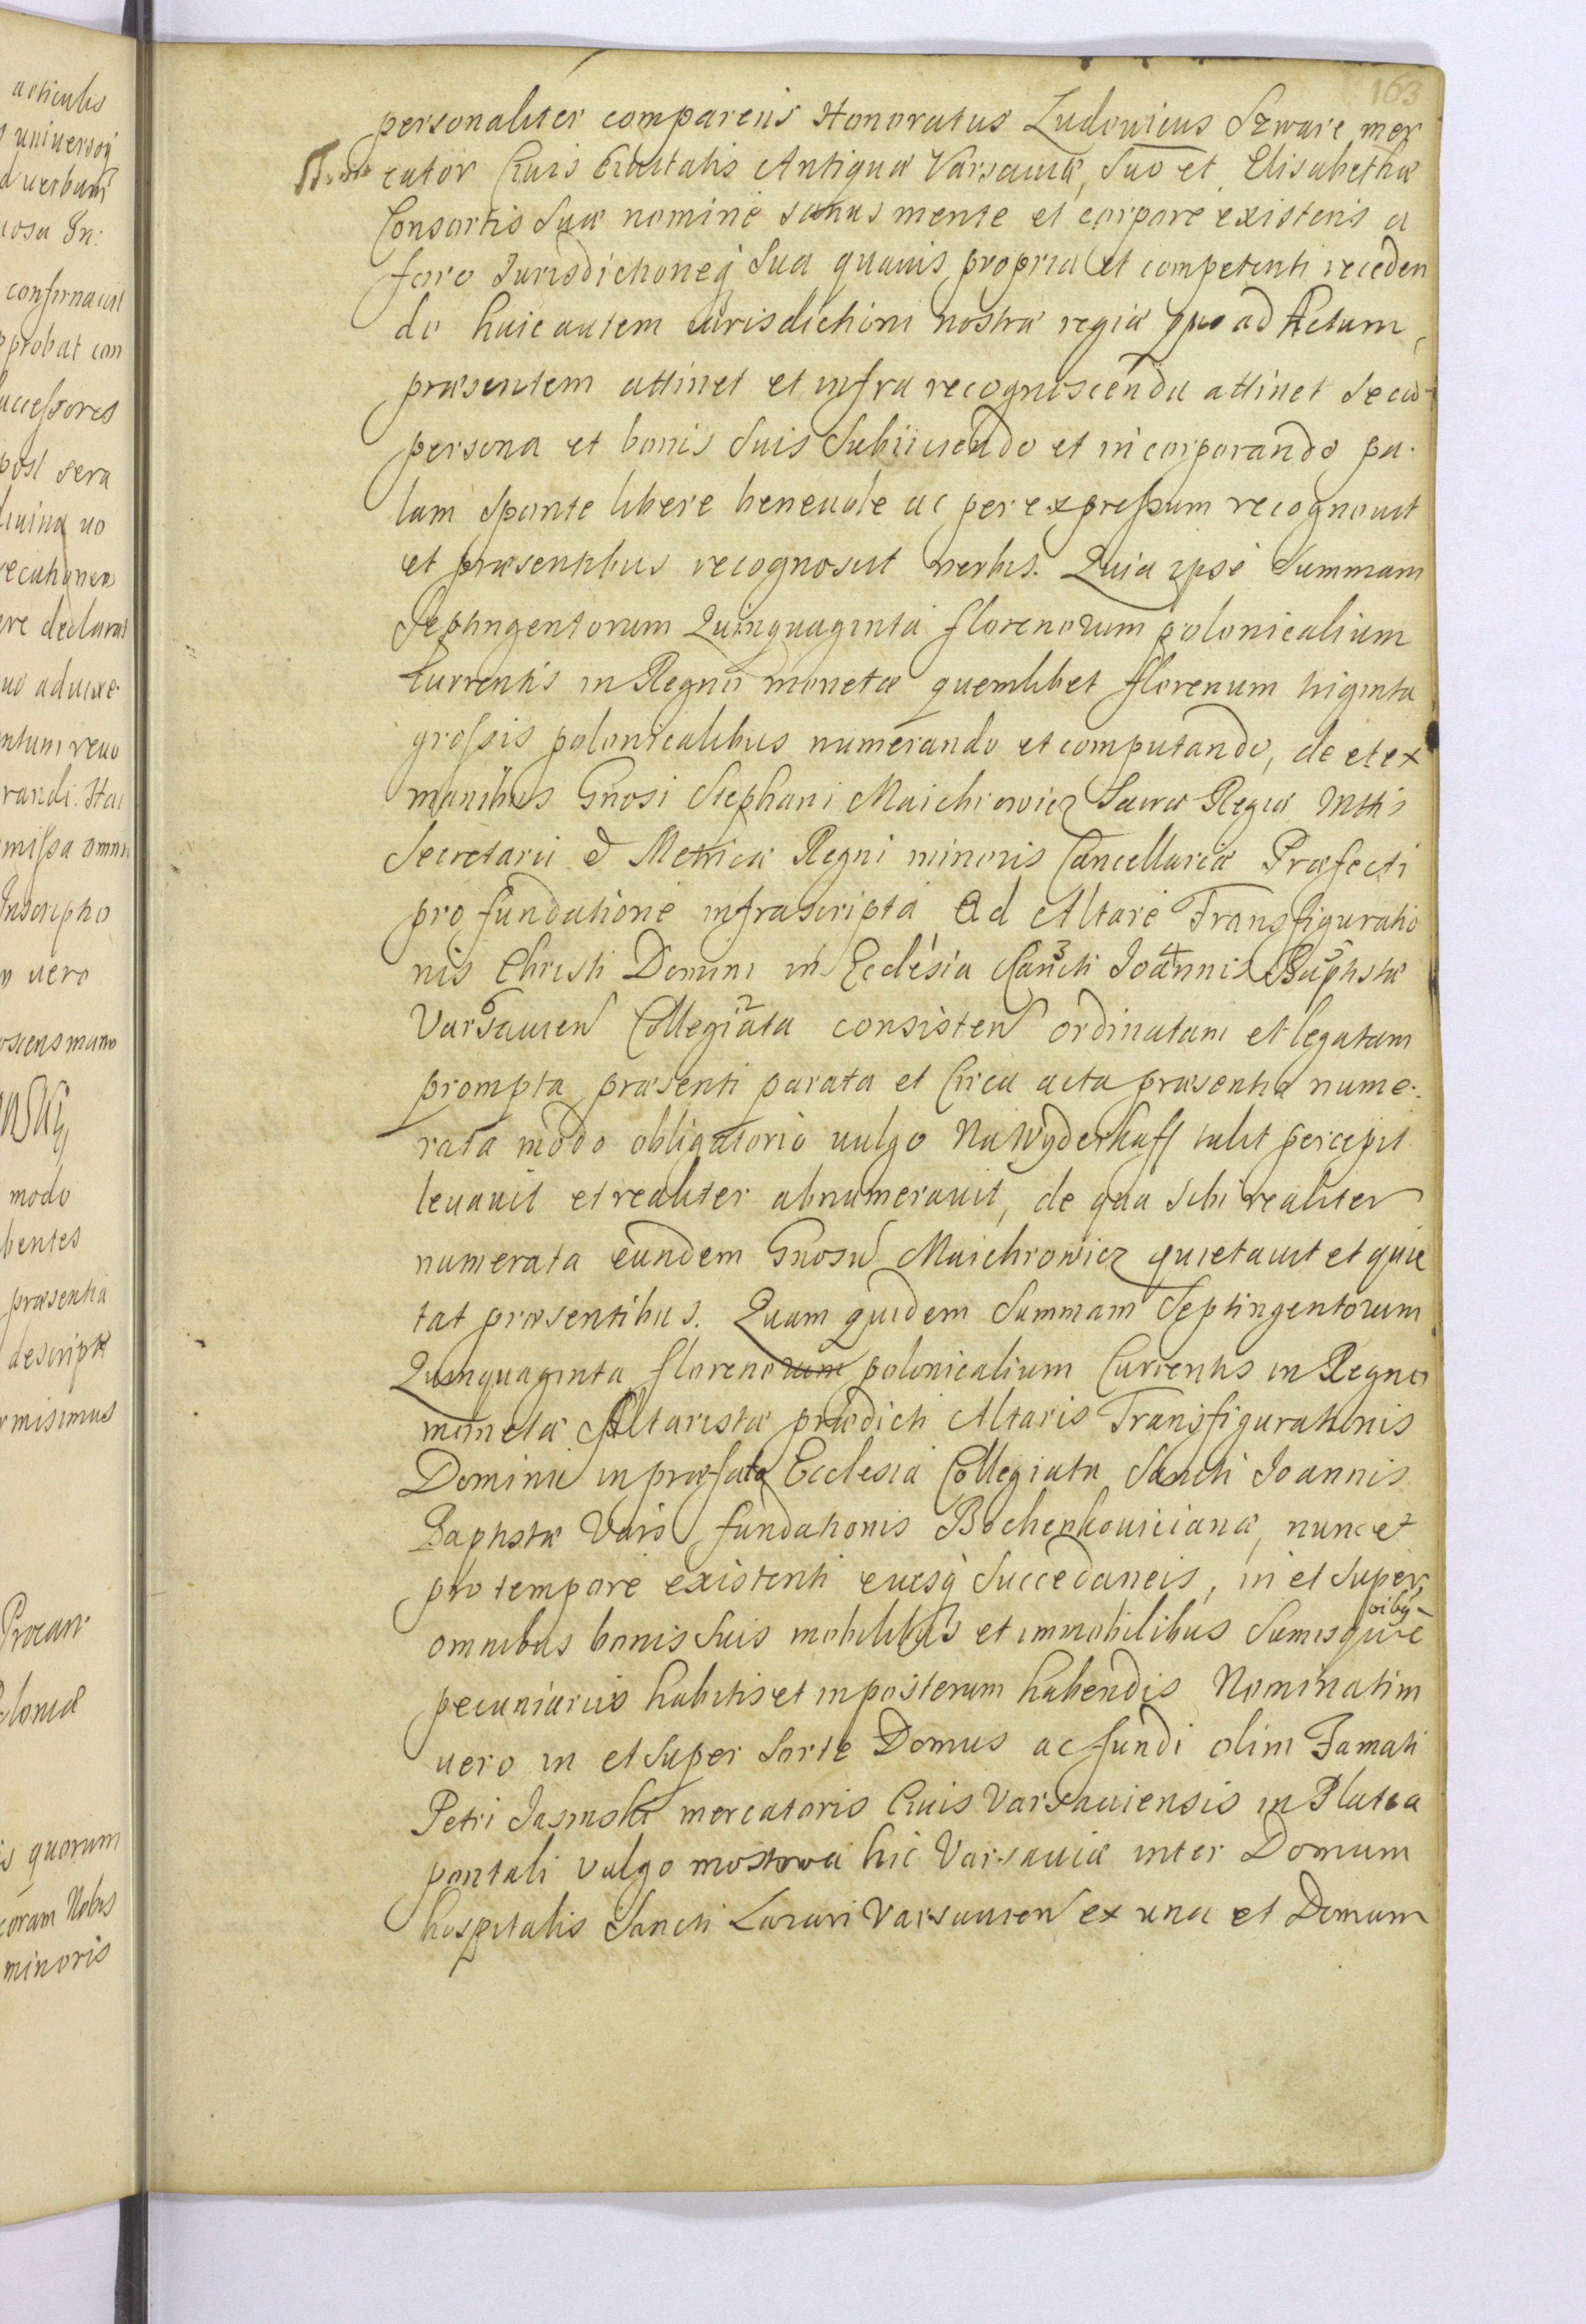 163
personaliter comparens Honoratus Ludouicus Szwarc mer
cator Ciuis Ciuitatis Antiquæ Varsauiæ, suo et Elisabethæ
Consortis suæ nomine sanus mente et corpore existens a
foro Iurisdictioneq́ sua quauis propria et competenti receden
do huic autem iurisdictioni nostræ regiæ quo ad Actum
præsentem attinet et infra recognoscenda attinet se cū
persona et bonis suis subiiciendo et incorporando pa-
lam sponte libere beneuole ac per expressum recognouit
et præsentibus recognoscit verbis. Quia ipse summam
Septingentorum Quinquaginta florenorum polonicalium
Currentis in Regno monetæ quemlibet florenum triginta
grossis polonicalibus numerando et computando, de et ex
manibus Gnosi Stephani Maichrowicz Sacræ Regiæ Mttis
Secretarii & Metricæ Regni minoris Cancellariæ Præfecti
pro fundatione infrascripta Ad Altare Transfiguratio
nis Christi Domini in Ecclesia 1 Sancti 3 Joannis 4 Baptistæ 5
Varsauien 6 Collegiata 2 consisten ordinatam et legatam
prompta præsenti parata et Circa acta præsentia nume-
rata modo obligatorio uulgo Na Wyderkaff tulit percepit
leuauit et realiter abnumerauit, de qua sibi realiter
numerata eundem Gnosū Maichrowicz quietauit et quie
tat præsentibus. Quam quidem summam Septingentorum
Quinquaginta florenorum polonicalium Currentis in Regno
monetæ Altaristæ prædicti Altaris Transfigurationis
Domini in præfata Ecclesia Collegiata Sancti Joannis
Baptistæ Vars fundationis Bochenkouicianæ, nunc et
pro tempore existenti eiusq́ Succedaneis, in et super
omnibus bonis suis mobilibus et immobilibus sumisque oibq
pecuniariis habitis et inposterum habendis Nominatim
uero in et super sorte Domus ac fundi olim Famati
Petri Jasinski mercatoris Ciuis Varsauiensis in Platea
pontali vulgo mostowa hic Varsauiæ inter Domum
hospitalis Sancti Lazari Varsauien ex una et Domum